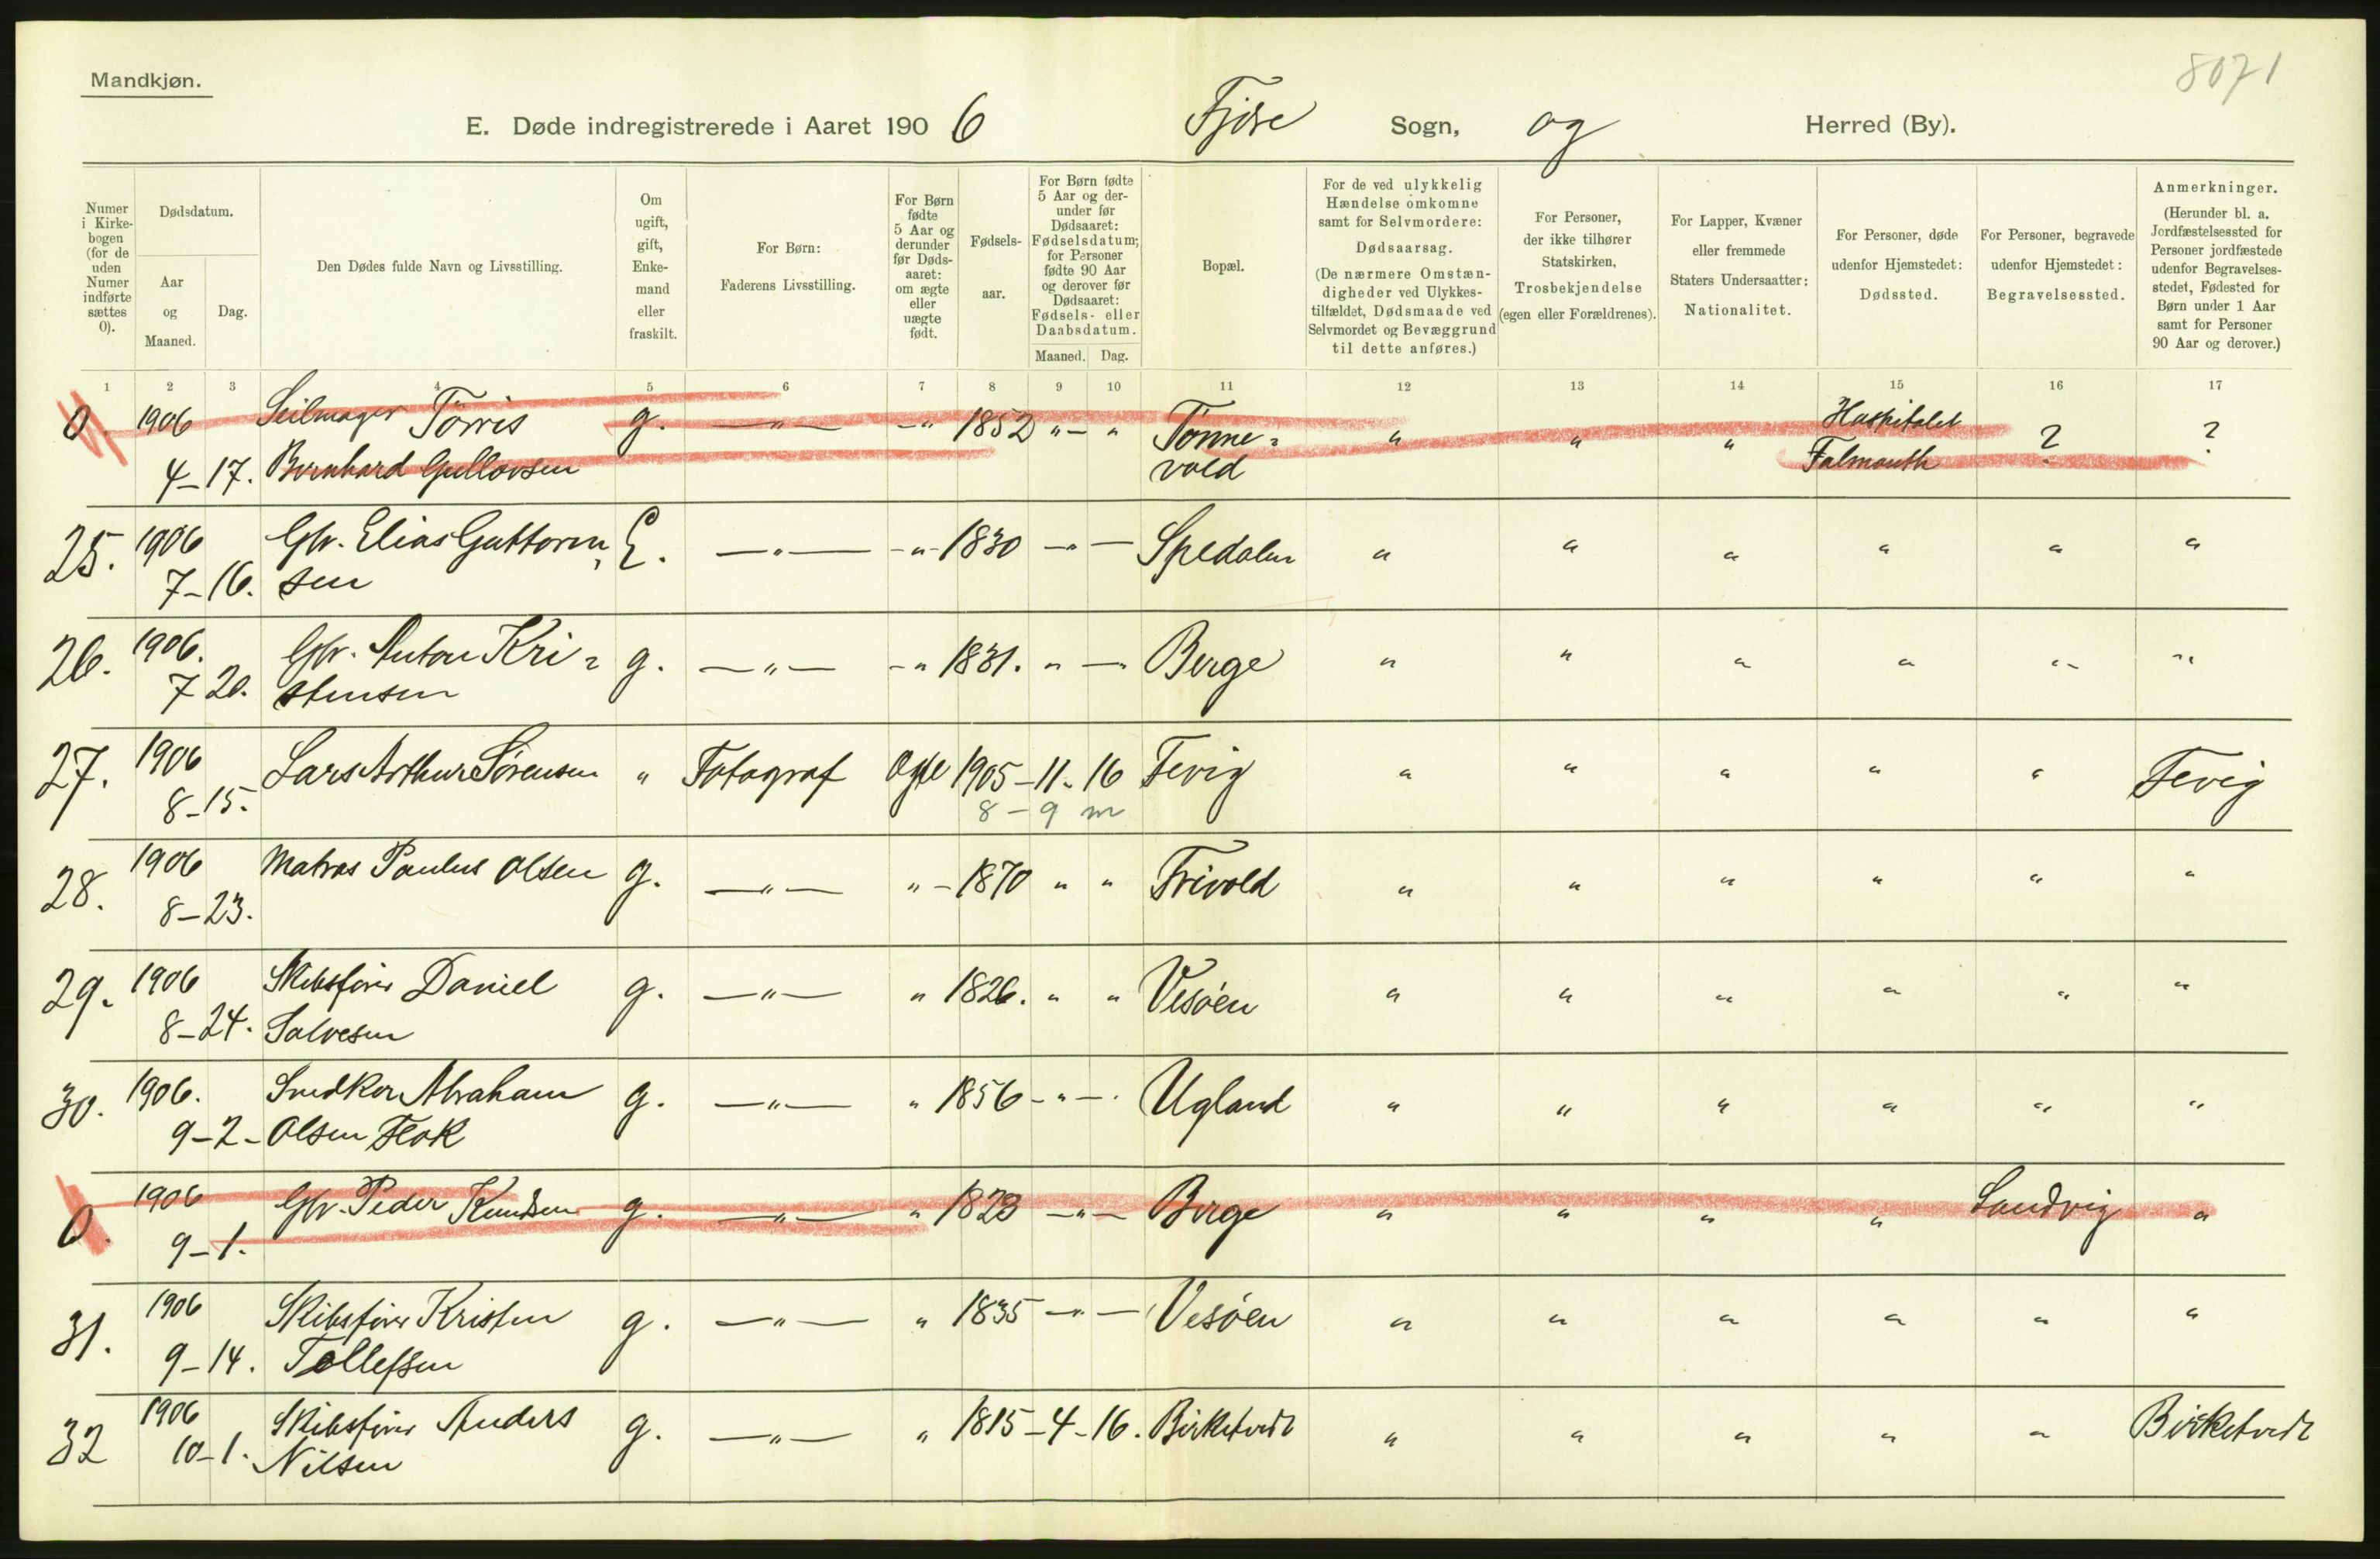 8071
Mandkjøn.
E. Døde indregistrerede i Aaret 1906 Fjære Sogn, og Herred (By).
Numer i Kirkebogen (for de uden Numer indførte sættes 0).
Dødsdatum.
Aar og Maaned.
Dag.
Den Dødes fulde Navn og Livsstilling.
Om ugift, gift, Enkemand eller fraskilt.
For Børn: Faderens Livsstilling.
For Børn fødte 5 Aar og derunder før Dødsaaret: om ægte eller uægte født.
Fødselsaar.
For Børn fødte 5 Aar og derunder før Dødsaaret: Fødselsdatum; for Personer fødte 90 Aar og derover før Dødsaaret: Fødsels- eller Daabsdatum.
Maaned. Dag.
Bopæl.
For de ved ulykkelig Hændelse omkomne samt for Selvmordere: Dødsaarsag. (De nærmere Omstændigheder ved Ulykkestilfældet, Dødsmaade ved Selvmordet og Bevæggrund til dette anføres.)
For Personer, der ikke tilhører Statskirken, Trosbekjendelse (egen eller Forældrenes).
For Lapper, Kvæner eller fremmede Staters Undersaatter: Nationalitet.
For Personer, døde udenfor Hjemstedet: Dødssted.
For Personer, begravede udenfor Hjemstedet: Begravelsessted.
Anmerkninger. (Herunder bl. a. Jordfæstelsessted for Personer jordfæstede udenfor Begravelsesstedet, Fødested for Børn under 1 Aar samt for Personer 90 Aar og derover.)
1 2 3 4 5 6 7 8 9 10 11 12 13 14 15 16 17
0. 1906 Seilmager Tørris g. —„— -„ 1852 „ — „ Tønne= „ „ „ Hospitalet ? ?
4-17. Bernhard Gullovsen vold Falmouth
25. 1906 Gbr. Elias Guttorm= E. —„— -„- 1830 -„- Spedalen „ „ „ „ „ „
7-16. sen
26. 1906. Gbr. Anton Kri= g. —„— -„ 1831. „ —„ Berge „ „ „ „ „ „
7 20. stensen
27. 1906 Lars Arthur Sørensen „ Fotograf Ægte 1905-11-16 Fevig „ „ „ „ „ Fevig
8-15. 8-9 m
28. 1906 Matros Paulus Olsen g. —„— „ - 1870 „ „ Frivold „ „ „ „ „ „
8-23.
29. 1906 Skibsfører Daniel g. —„— „ 1826. „ „ Vesøen „ „ „ „ „ „
8-24. Salvesen
30. 1906. Snedker Abraham g. —„— „ 1856 -„-. Ugland „ „ „ „ „ „
9-2- Olsen
0. 1906 Gbr. Peder Knudsen g. —„— „ 1823 -„- Berge „ „ „ „ Landvig „
9-1.
31. 1906 Skibsfører Kristen g. —„— „ 1835 -„- Vesøen „ „ „ „ „ „
9-14. Tellefsen
32 1906 Skibsfører Anders g. —„— „ 1815-4-16. Birketvedt „ „ „ „ „ Birketvedt
10-1. Nilsen